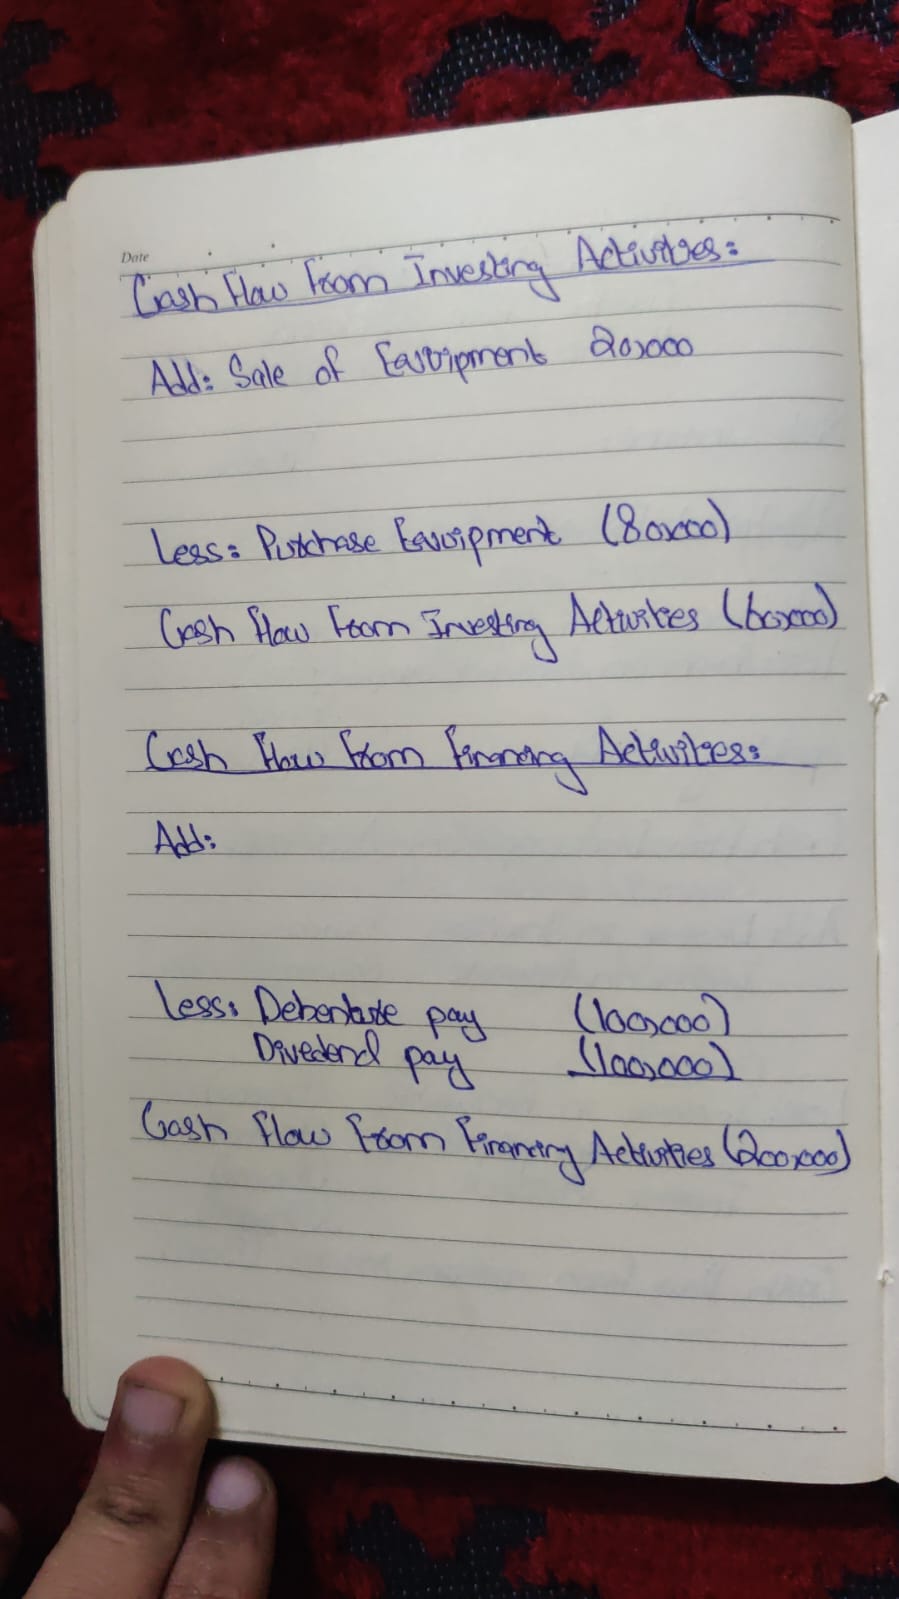 Date
Cash Flow From Investing Activities:
Add: Sale of Equipment 20,000
Less: Purchase Equipment (80,000)
Cash Flow From Investing Activities (60,000)
Cash Flow From Financing Activities:
Add:
Less: Debenture pay (100,000)
Divedend pay (100,000)
Cash Flow From Financing Activities (200,000)